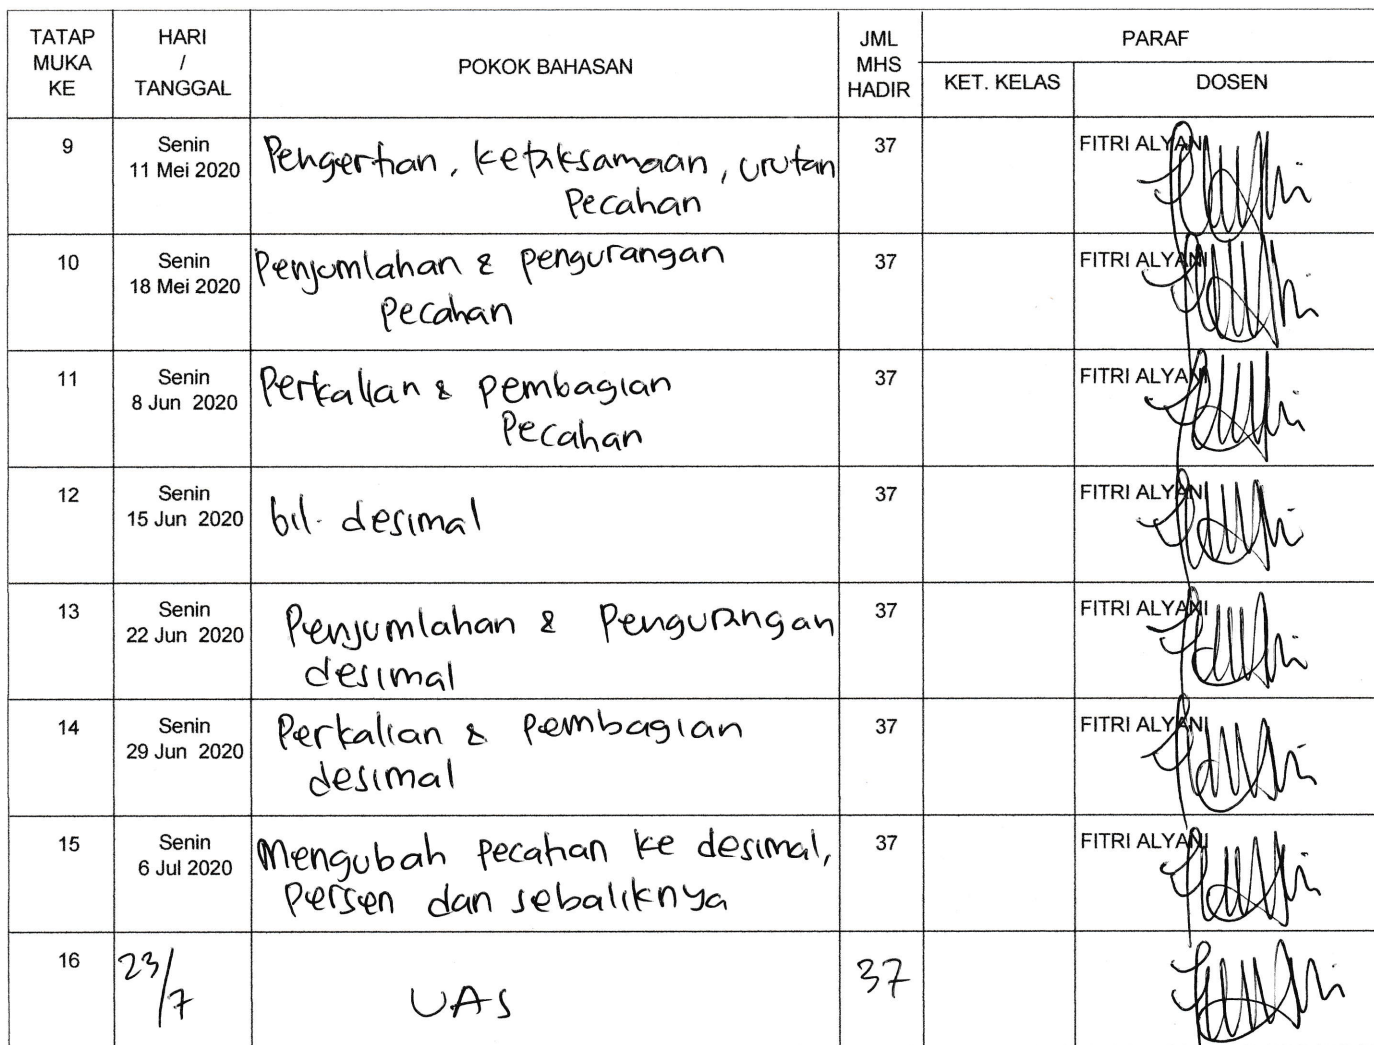 TATAP MUKA KE
HARI / TANGGAL
POKOK BAHASAN
JML MHS HADIR
PARAF
KET. KELAS
DOSEN
9
Senin
11 Mei 2020
Pengertian, ketaksamaan, urutan
Pecahan
37
FITRI ALYANI
10
Senin
18 Mei 2020
Penjumlahan & pengurangan
Pecahan
37
FITRI ALYANI
11
Senin
8 Jun 2020
Perkalian & pembagian
Pecahan
37
FITRI ALYANI
12
Senin
15 Jun 2020
bil. desimal
37
FITRI ALYANI
13
Senin
22 Jun 2020
Penjumlahan & Pengurangan
desimal
37
FITRI ALYANI
14
Senin
29 Jun 2020
Perkalian & pembagian
desimal
37
FITRI ALYANI
15
Senin
6 Jul 2020
Mengubah pecahan ke desimal,
Persen dan sebaliknya
37
FITRI ALYANI
16
23/7
UAS
37